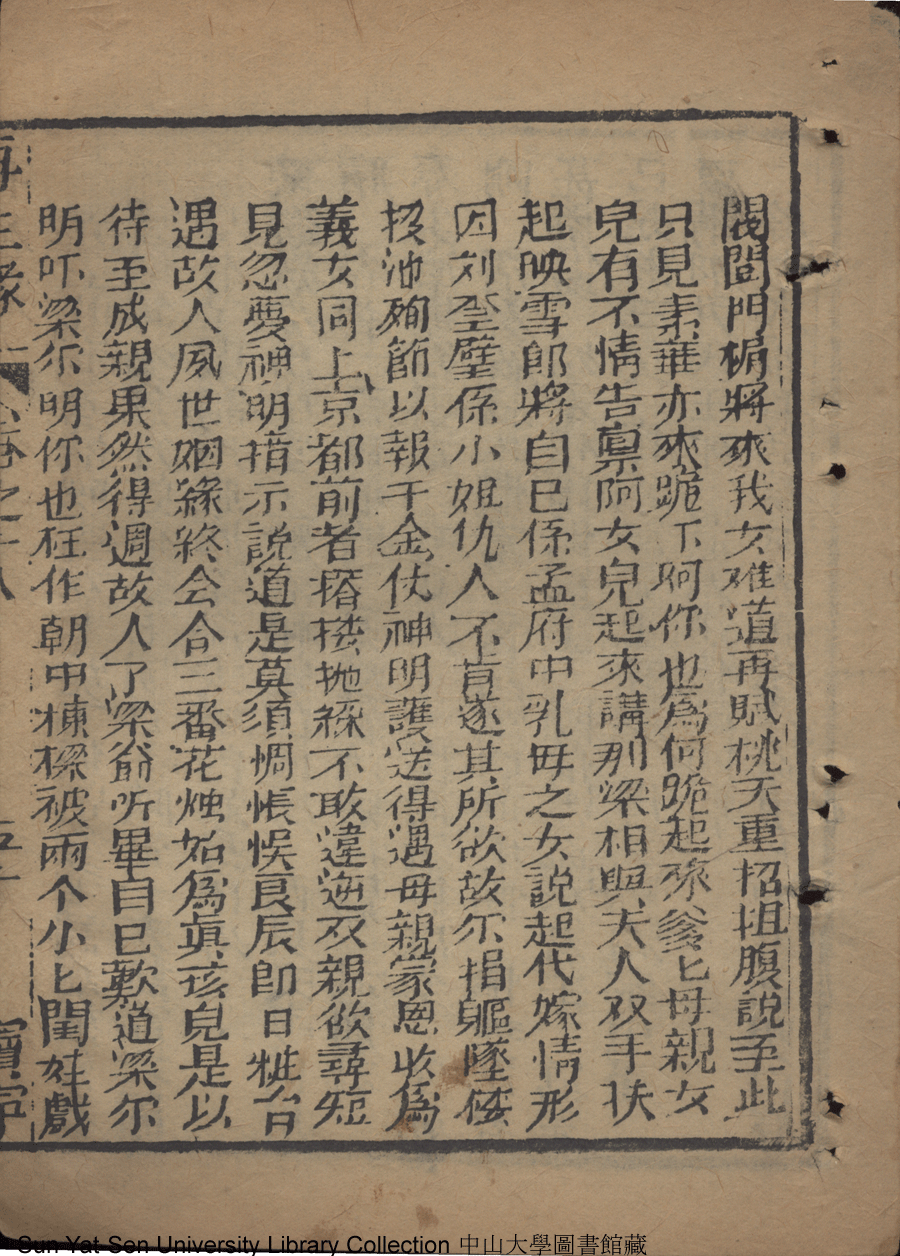 閥閭門楣將來我女难道再賦桃夭重招坦腹說至此
只見素華亦來跪下阿你也爲何跪起來爹匕母親女
兒有不情告禀阿女兒起來講那梁相與夫人双手扶
起映雪郎將自己係孟府中乳母之女說起代嫁情形
因刘奎璧係小姐仇人不肯遂其所欲故尔捐軀墜楼
投池殉節以報千金仗神明護送得遇母親家恩收爲
義女同上京都前者搭楼抛綵不敢違逆双親欲尋短
見忽夢神明指示說道是莫須惆悵悞良辰即日粧台
遇故人夙世姻緣終会合三番花烛始爲眞孩兒是以
待至成親果然得遇故人了梁翁听畢自己歎道梁尔
明吓梁尔明你也枉作朝中棟樑被兩个小匕閨娃戲
再生緣 卷之十八
Sun Yat Sen University Library Collection 中山大學圖書館藏